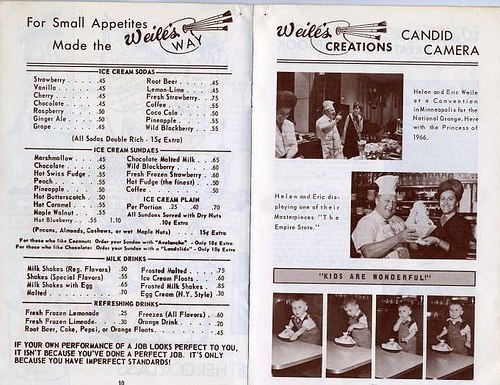 For Small Appetites
Made the Weile's WAY
ICE CREAM SODAS
Strawberry . . . . .45
Vanilla . . . . .45
Cherry . . . . .45
Chocolate . . . . .45
Raspberry . . . . .50
Ginger Ale . . . . .50
Grape . . . . .45
Root Beer . . . . .45
Lemon-Lime . . . . .45
Fresh Strawberry . . .75
Coffee . . . . .55
Coca Cola . . . . .50
Pineapple . . . . .55
Wild Blackberry . . . .55
(All Sodas Double Rich - 15¢ Extra)
ICE CREAM SUNDAES
Marshmallow . . . .45
Chocolate . . . . .45
Hot Swiss Fudge . . .55
Peach . . . . .55
Pineapple . . . . .50
Hot Butterscotch . . .50
Hot Caramel . . . .55
Maple Walnut . . . .55
Hot Blueberry . . .55 1.10
Chocolate Malted Milk . . .65
Wild Blackberry . . . .60
Fresh Frozen Strawberry . .60
Hot Fudge (the finest) . . .50
Coffee . . . . .50
ICE CREAM PLAIN
Per Portion .25 .40 .70
All Sundaes Served with Dry Nuts
.10¢ Extra
(Pecans, Almonds, Cashews, or wet Maple Nuts) . . . 15¢ Extra
For those who like Coconut: Order your Sundae with "Avalanche" - Only 10¢ Extra
For those who like Chocolate: Order your Sundae with a "Landslide" - Only 10¢ Extra
MILK DRINKS
Milk Shakes (Reg. Flavors) .50
Shakes (Special Flavors) .55
Milk Shakes with Egg .65
Malted . . . . .70
Frosted Malted . . . .75
Ice Cream Floats . . . .60
Frosted Milk Shakes . . .85
Egg Cream (N.Y. Style) .30
REFRESHING DRINKS
Fresh Frozen Lemonade .25
Fresh Frozen Limeade . .30
Freezes (All Flavors) . .60
Orange Drink . . . .20
Root Beer, Coke, Pepsi, or Orange Floats . . . .45
IF YOUR OWN PERFORMANCE OF A JOB LOOKS PERFECT TO YOU,
IT ISN'T BECAUSE YOU'VE DONE A PERFECT JOB. IT'S ONLY
BECAUSE YOU HAVE IMPERFECT STANDARDS!
10
Weile's CREATIONS
CANDID
CAMERA
Helen and Eric Weile
at a Convention
in Minneapolis for the
National Grange. Here
with the Princess of
1966.
Helen and Eric dis-
playing one of their
Masterpieces "The
Empire State."
"KIDS ARE WONDERFUL!"